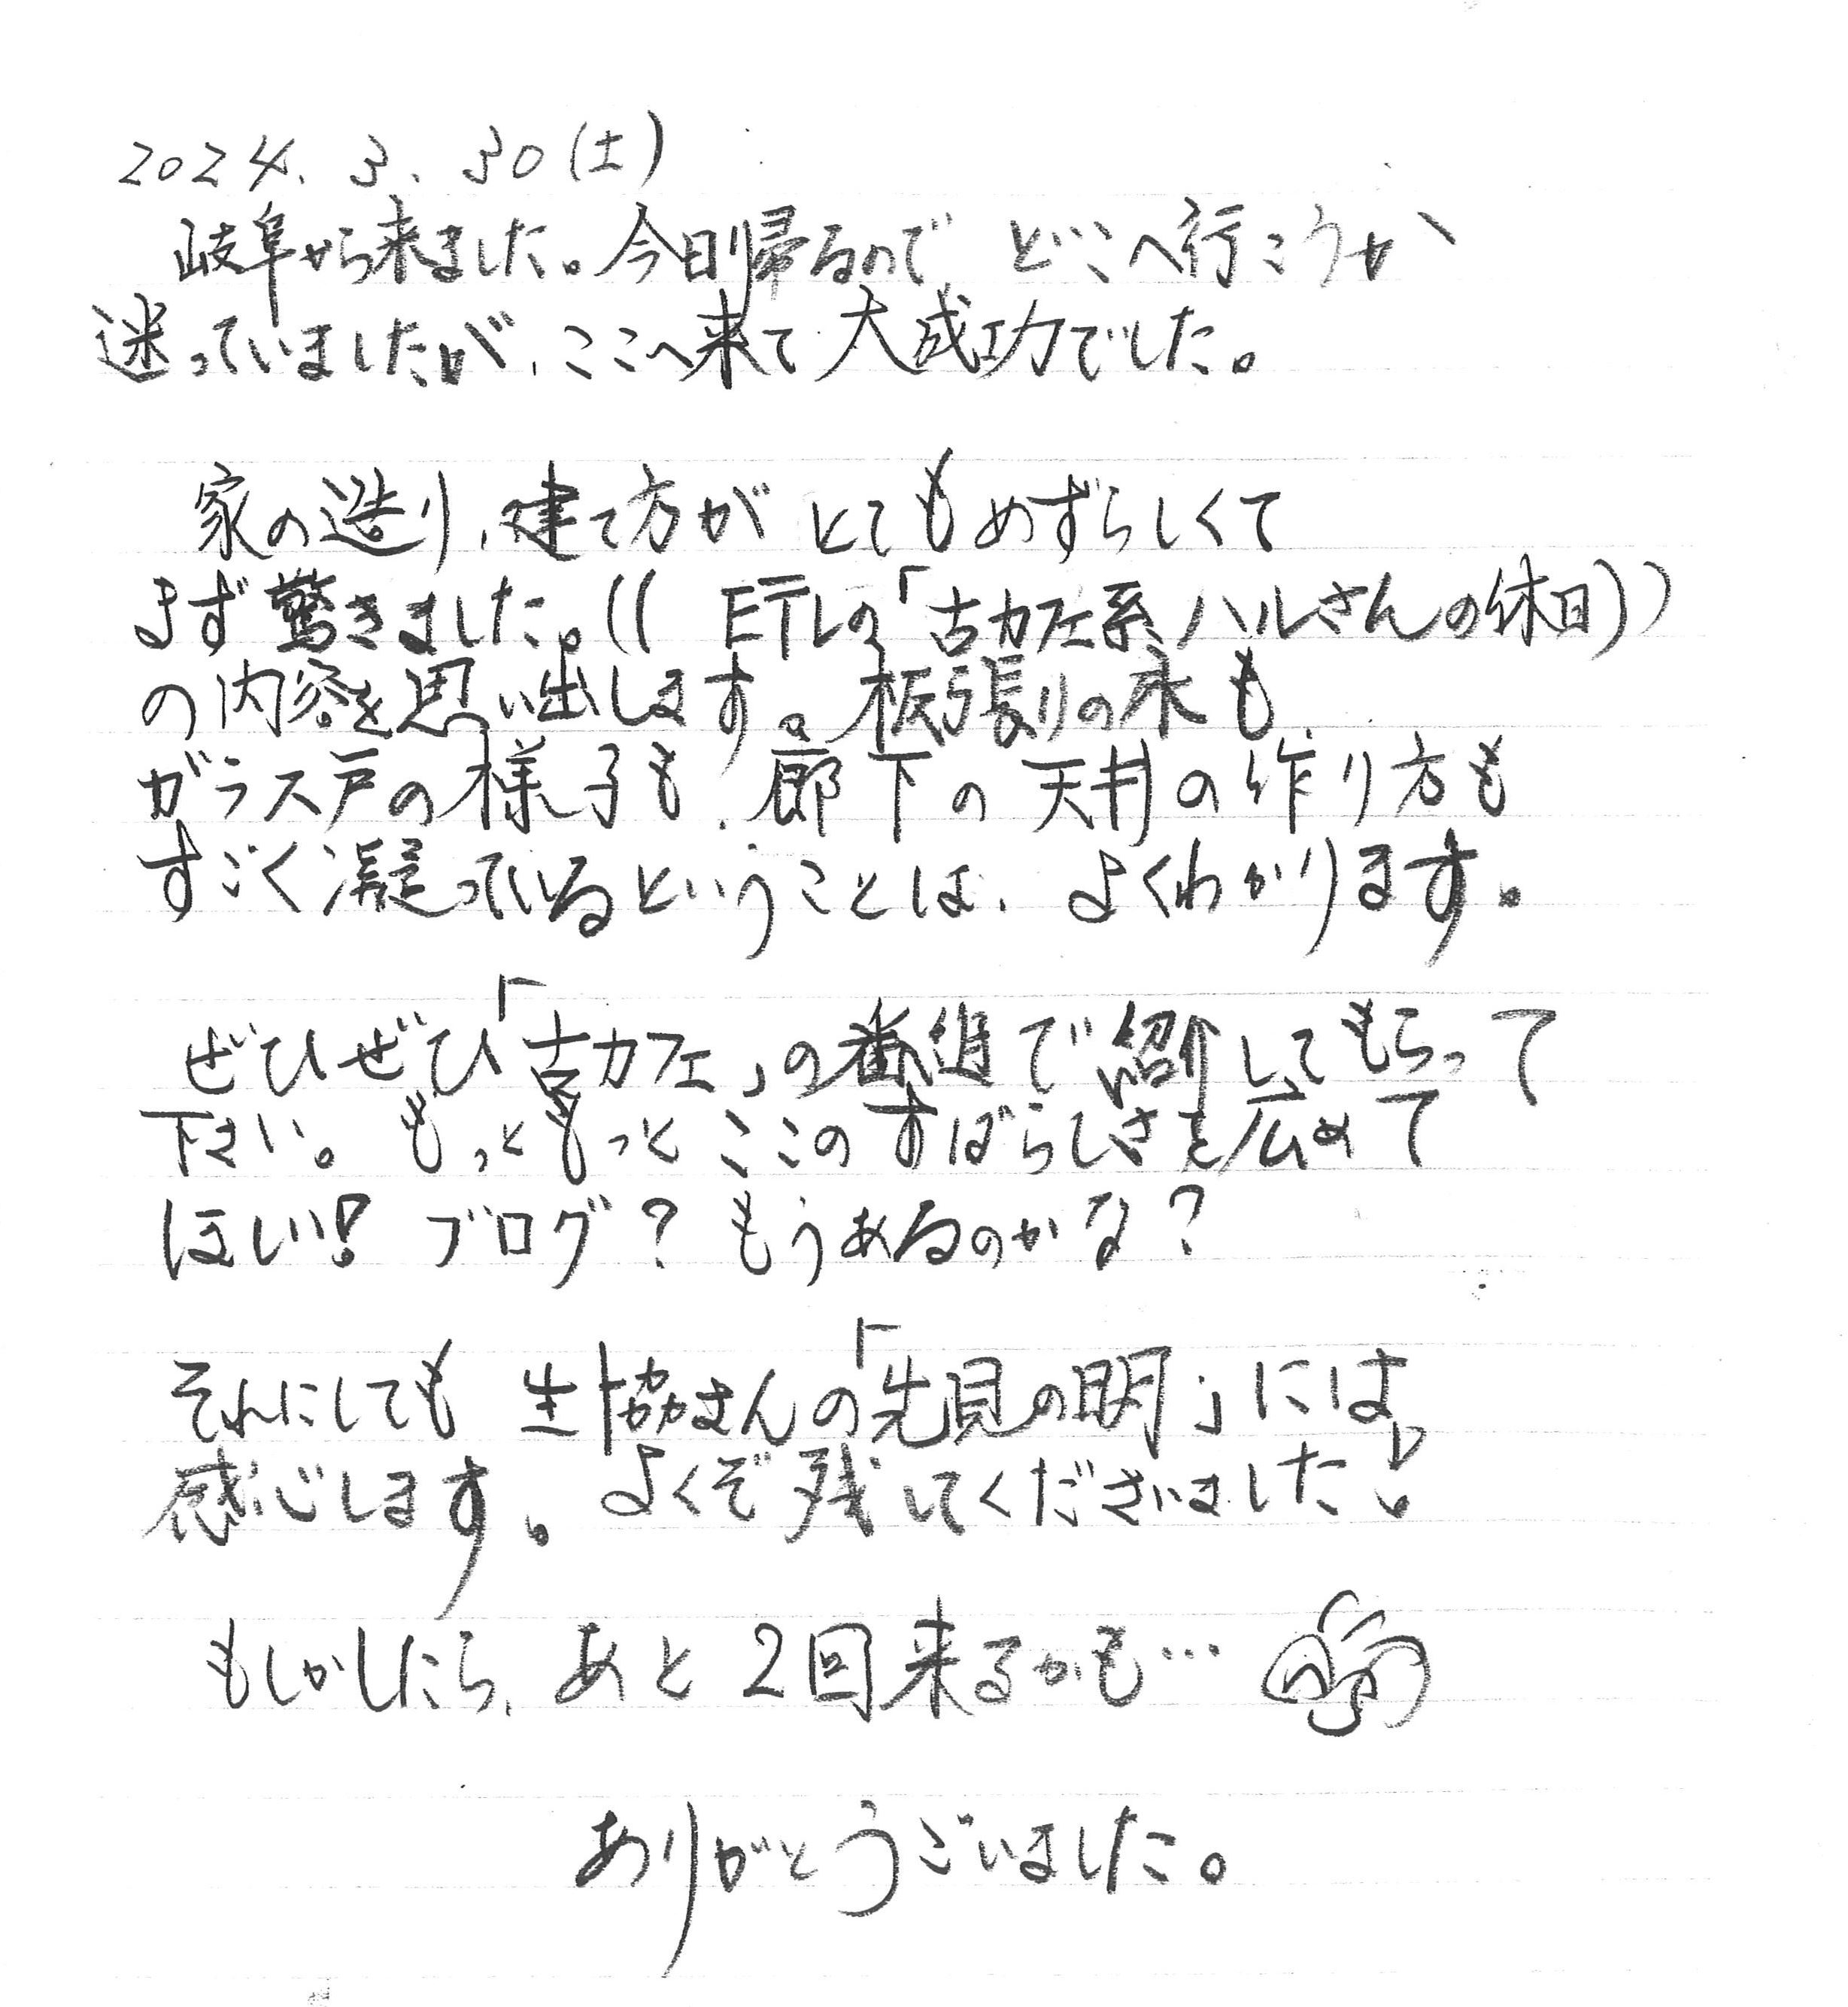 2024. 3. 30(土)
岐阜から来ました。今日帰るので どこへ行こうか
迷っていましたが、ここへ来て大成功でした。
家の造り、建て方が とてもめずらしくて
まず驚きました。(( Eテレの「古カフェ系 ハルさんの休日))
の内容を思い出します。板張りの床も
ガラス戸の様子も、廊下の天井の作り方も
すごく凝っているということは、よくわかります。
ぜひぜひ「古カフェ」の番組で紹介してもらって
下さい。もっともっと ここのすばらしさを広めて
ほしい! ブログ? もうあるのかな?
それにしても 生協さんの「先見の明」には
感心します。よくぞ残してくださいました!
もしかしたら、あと2回来るかも…
ありがとうごいました。